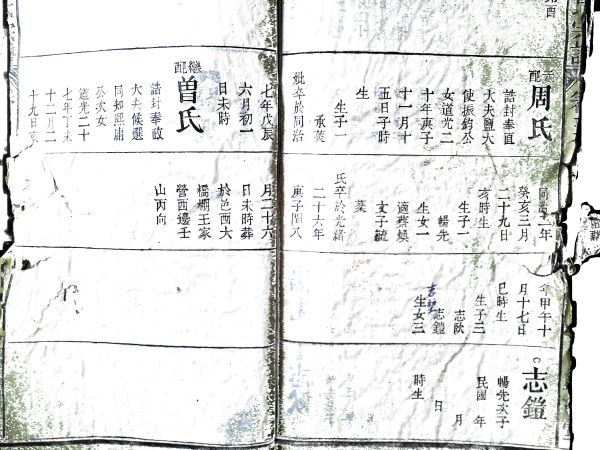 元配
周氏
誥封奉直
大夫鹽大
使振鈞公
女道光二
十年庚子
十一月十
五日子時
生
生子一
承葵
妣卒於同治
七年戊辰
六月初一
日未時
繼配
曽氏
誥封奉政
大夫候選
同知熙庸
公次女
道光二十
七年丁未
十二月二
十九日亥
同治十年
癸亥三月
二十九日
亥時生
生子一
暢先
生女一
適蔡煥
文子毓
葵
氏卒於光緒
二十六年
庚子閏八
月二十六
日未時葬
於邑西大
橋壩王家
營西邊壬
山丙向
年甲午十
月十七日
巳時生
生子三
志歐
志鐙
生女三
志鐙
暢先次子
民國 年
月
日
時生